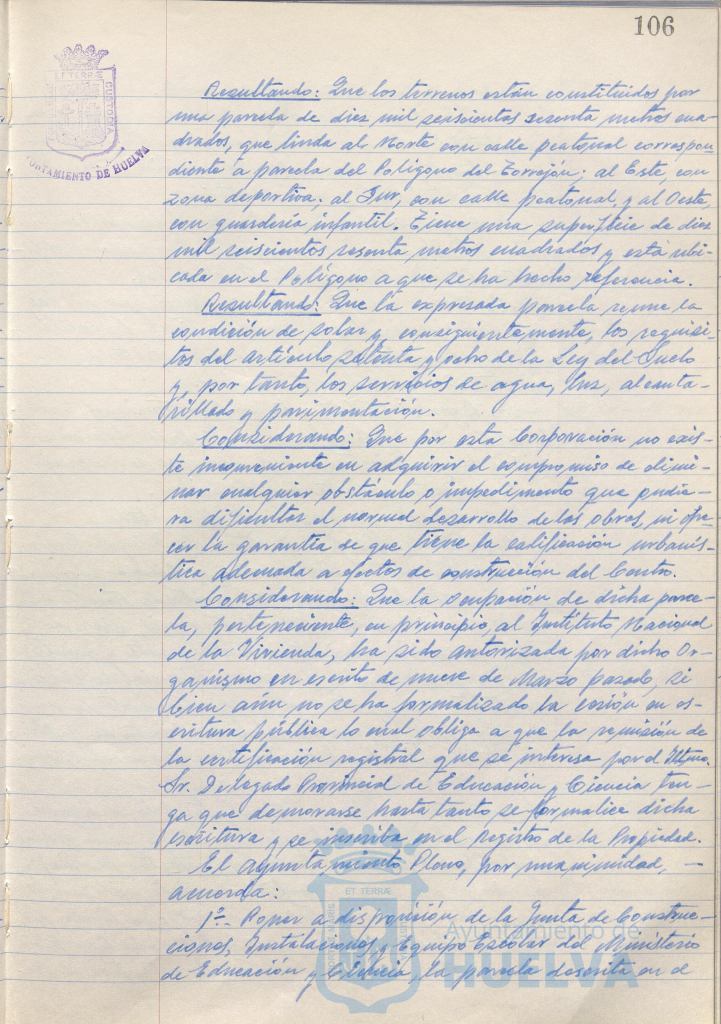 106
ET TERRÆ
CUSTODIA
AYUNTAMIENTO DE HUELVA
Resultando: Que los terrenos están constituidos por
una parcela de diez mil seiscientos sesenta metros cua-
drados, que linda al Norte con calle peatonal correspon-
diente a parcela del Polígono del Torrejón; al Este, con
zona deportiva; al Sur, con calle peatonal, y al Oeste,
con guardería infantil. Tiene una superficie de diez
mil seiscientos sesenta metros cuadrados y está ubi-
cada en el Polígono a que se ha hecho referencia.
Resultando: Que la expresada parcela reune la
condición de solar y, consiguientemente, los requisi-
tos del artículo setenta y ocho de la Ley del Suelo
y, por tanto, los servicios de agua, luz, alcanta-
rillado y pavimentación.
Considerando: Que por esta Corporación no exis-
te inconveniente en adquirir el compromiso de elimi-
nar cualquier obstáculo o impedimento que pudie-
ra dificultar el normal desarrollo de las obras, ni ofre-
cer la garantía de que tiene la calificación urbanís-
tica adecuada a efectos de construcción del Centro.
Considerando: Que la ocupación de dicha parce-
la, perteneciente, en principio, al Instituto Nacional
de la Vivienda, ha sido autorizada por dicho Or-
ganismo en escrito de nueve de Marzo pasado, si
bien aún no se ha formalizado la cesión en es-
critura pública lo cual obliga a que la remisión de
la certificación registral que se interesa por el Iltmo.
Sr. Delegado Provincial de Educación y Ciencia ten-
ga que demorarse hasta tanto se formalice dicha
escritura y se inscriba en el Registro de la Propiedad.
El Ayuntamiento Pleno, por unanimidad, -
acuerda:
1º.- Poner a disposición de la Junta de Construc-
ciones, Instalaciones y Equipo Escolar del Ministerio
de Educación y Ciencia, la parcela descrita en el
ET TERRÆ
Ayuntamiento de
HUELVA